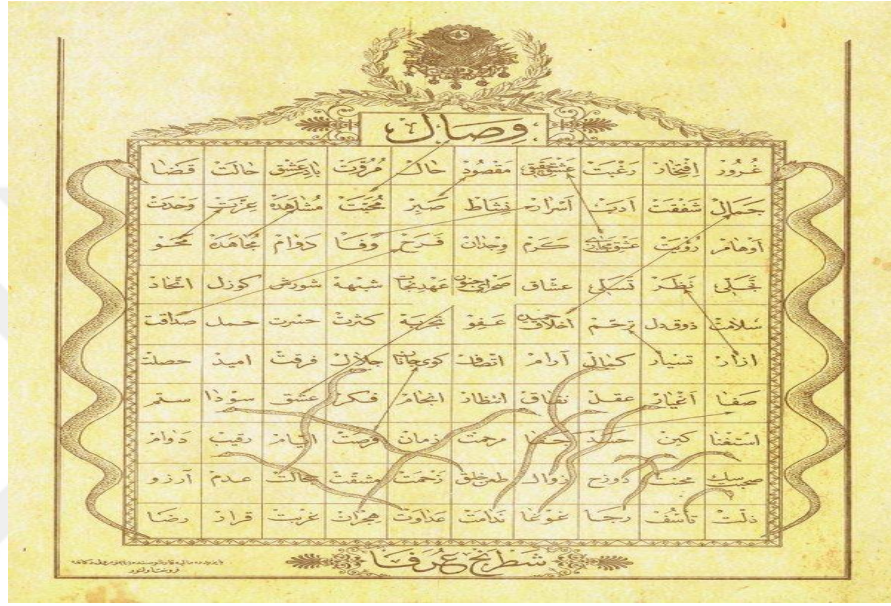 وصال
غرور افتخار رغبت عشق حقيقى مقصود حال مروت باده عشق حالت قضا
جمال شفقت ادب اسرار نشاط صبر محبت مشاهده عزت وحدت
اوهام رؤيت عشق مجازى كرم وجدان فرح وفا دوام مجاهده محو
تجلى نظر تسلى عشاق صحراى جنون شبهه شورش كوزل اتحاد
سلامت ذوق دل ترحم اخلاق حميده عفو تجربه كثرت حسرت حمل صداقت
ازار تسيار كمال آرام اتصاف كوى جانان جلال فرقت اميد حصلت
صفا اغيار عقل نفاق انتظار انجام فكر عشق سودا ستم
استغنا كين حسد جفا مرحمت زمان فرصت رقيب دوام
محنت دوزخ زوال طعن خلق زحمت مشقت عدم آرزو
ذلت تأسف رجا غوغا ندامت عداوت هجران غربت قرار رضا
شطرنج عرفا